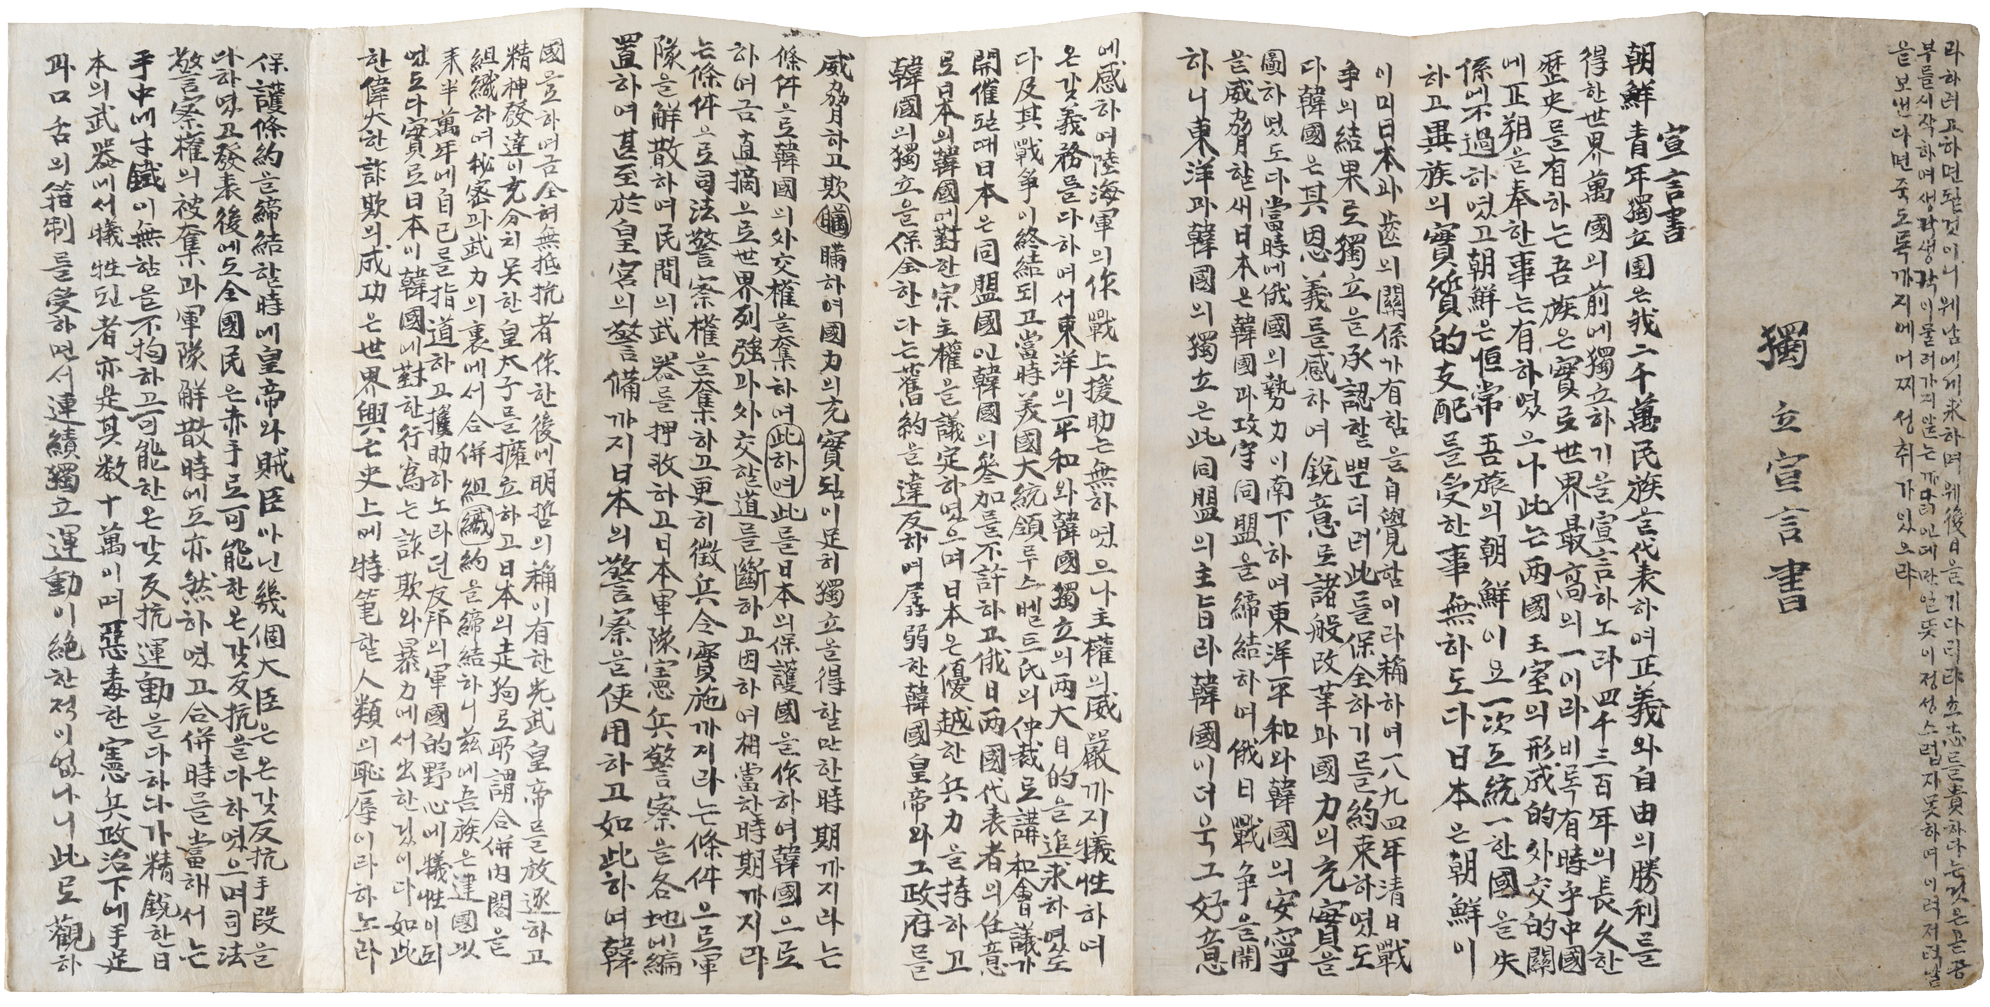 라하려고하면될것이니웨남에게求하며웨後日을기다리랴立志를貴하다는것은곧공
부를시작하여생각생각이물러가지않는까닭인데만일뜻이정성스럽지못하며이러저러날
을보낸다면죽도록까지에어찌성취가있으랴
獨立宣言書
宣言書
朝鮮青年獨立團은我二千萬民族을代表하여正義와自由의勝利를
得한世界萬國의前에獨立하기을宣言하노라四千三百年의長久한
歷史를有하는吾族은實로世界最高의一이라비록有時乎中國
에正朔을奉한事는有하였으나此는両國王室의形式的外交的關
係에不過하였고朝鮮은恒常吾族의朝鮮이요一次도統一한國을失
하고異族의實質的支配를受한事無하도다日本은朝鮮이
이미日本과齒의關係가有함을自覺함이라稱하여一八九四年清日戰
爭의結果로獨立을承認할뿐더러此를保全하기를約束하였도
다韓國은其恩義를感하여銳意로諸般改革과國力의充實을
圖하였도다當時에俄國의勢力이南下하여東洋平和와韓國의安寧
을威脅할새日本은韓國과攻守同盟을締結하여俄日戰爭을開
하니東洋과韓國의獨立은此同盟의主旨라韓國이더욱그好意
에感하여陸海軍의作戰上援助는無하였으나主權의威嚴까지犧牲하여
온갖義務를다하여서東洋의平和와韓國獨立의両大目的을追求하였도
다及其戰爭이終結되고當時美國大統領루스벨트氏의仲裁로講和會議가
開催되때日本은同盟國인韓國의參加를不許하고俄日両國代表者의任意
로日本의韓國에對한宗主權을議定하였으며日本은優越한兵力을持하고
韓國의獨立을保全한다는舊約을違反하여孱弱한韓國皇帝와그政府를
威脅하고欺瞞하여國力의充實됨이足히獨立을得할만한時期까지라는
條件으로韓國의外交權을奪하여此하여此를日本의保護國을作하여韓國으로
하여금直摘으로世界列強과外交할道를斷하고因하여相當한時期까지라
는條件으로司法警察權을奪하고更히徵兵令實施까지라는條件으로軍
隊을解散하며民間의武器를押收하고日本軍隊憲兵警察을各地에編
置하여甚至於皇宮의警備까지日本의警察을使用하고如此하여韓
國을立하여금全혀無抵抗者作한後에明哲의稱이有한光武皇帝를放逐하고
精神發達이充分치못한皇太子를擁立하고日本의走狗로所謂合併內閣을
組織하여秘密과武力의裏에서合併組織約을締結하니茲에吾族은建國以
來半萬年에自己를指道하고援助하노라던友邦의軍國的野心에犧牲이되
였도다實로日本이韓國에對한行爲는詐欺와暴力에서出한것이다如此
한偉大한詐欺의成功은世界興亡史上에特筆할人類의恥辱이라하노라
保護條約을締結할時에皇帝와賊臣아닌幾個大臣은온갖反抗手段을
다하였고發表後에도全國民은赤手로可能한온갖反抗을다하였으며司法
警察權의被奪과軍隊解散時에도亦然하였고合併時를當해서는
手中에寸鐵이無함을不拘하고可能한온갖反抗運動을다하다가精銳한日
本의武器에서犧牲된者亦是其数十萬이며惡毒한憲兵政治下에手足
과口舌의箝制를受하면서連續獨立運動이絶한적이없나니此로觀하